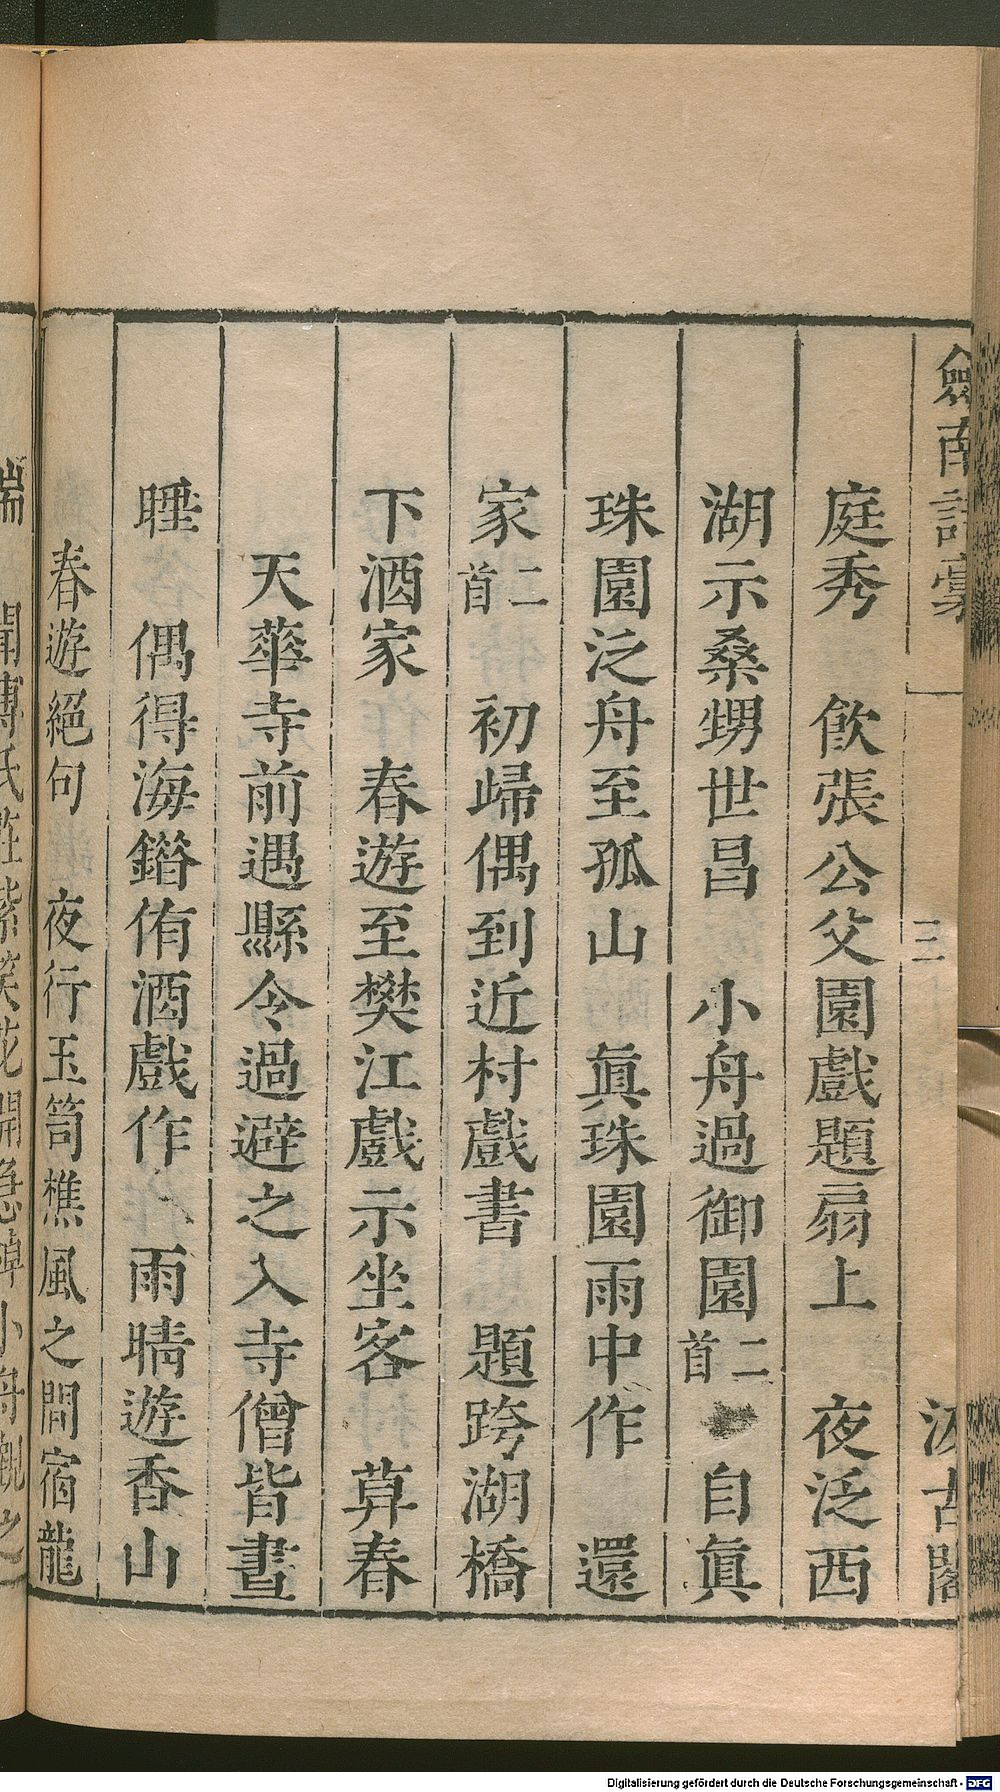 劒南詩稾 三 汲古閣
庭秀 飲張公父園戲題扇上 夜泛西
湖示桑甥世昌 小舟過御園二首 自眞
珠園泛舟至孤山 眞珠園雨中作 還
家二首 初歸偶到近村戲書 題跨湖橋
下酒家 春遊至樊江戲示坐客 算春
天華寺前遇縣令過避之入寺僧皆晝
睡 偶得海錯侑酒戲作 雨晴遊香山
春遊絕句 夜行玉笥樵風之間宿龍
瑞 聞傅氏莊紫笑花開急棹小舟觀之
Digitalisierung gefördert durch die Deutsche Forschungsgemeinschaft - DFG